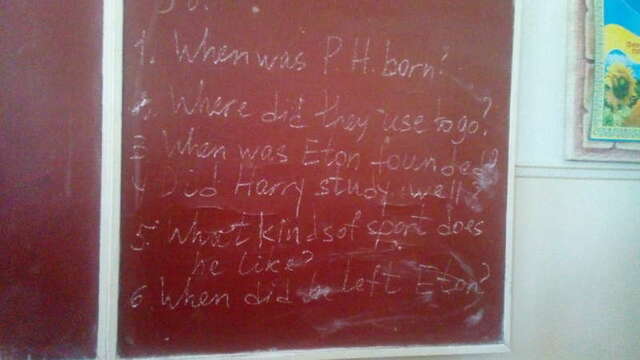 1. When was P.H. born?
2. Where did they use to go?
3. When was Eton founded?
4. Did Harry study well?
5. What kinds of sport does
he like?
6. When did he left Eton?